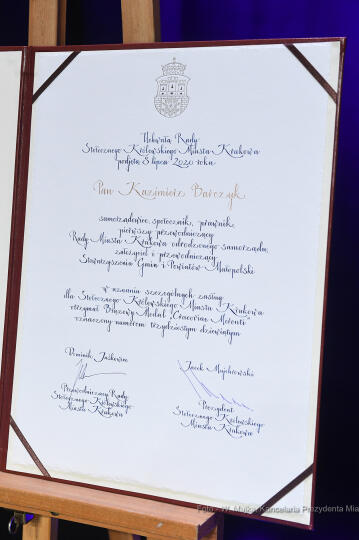 Uchwałą Rady
Stołecznego Królewskiego Miasta Krakowa
podjętą 8 lipca 2020 roku
Pan Kazimierz Barczyk
samorządowiec, społecznik, prawnik,
pierwszy przewodniczący
Rady Miasta Krakowa odrodzonego samorządu,
założyciel i przewodniczący
Stowarzyszenia Gmin i Powiatów Małopolski
w uznaniu szczególnych zasług
dla Stołecznego Królewskiego Miasta Krakowa
otrzymał Brązowy Medal Cracoviae Merenti
oznaczony numerem trzydziestym dziewiątym
Dominik Jaśkowiec
Przewodniczący Rady
Stołecznego Królewskiego
Miasta Krakowa
Jacek Majchrowski
Prezydent
Stołecznego Królewskiego
Miasta Krakowa
Kancelaria Prezydenta Mia